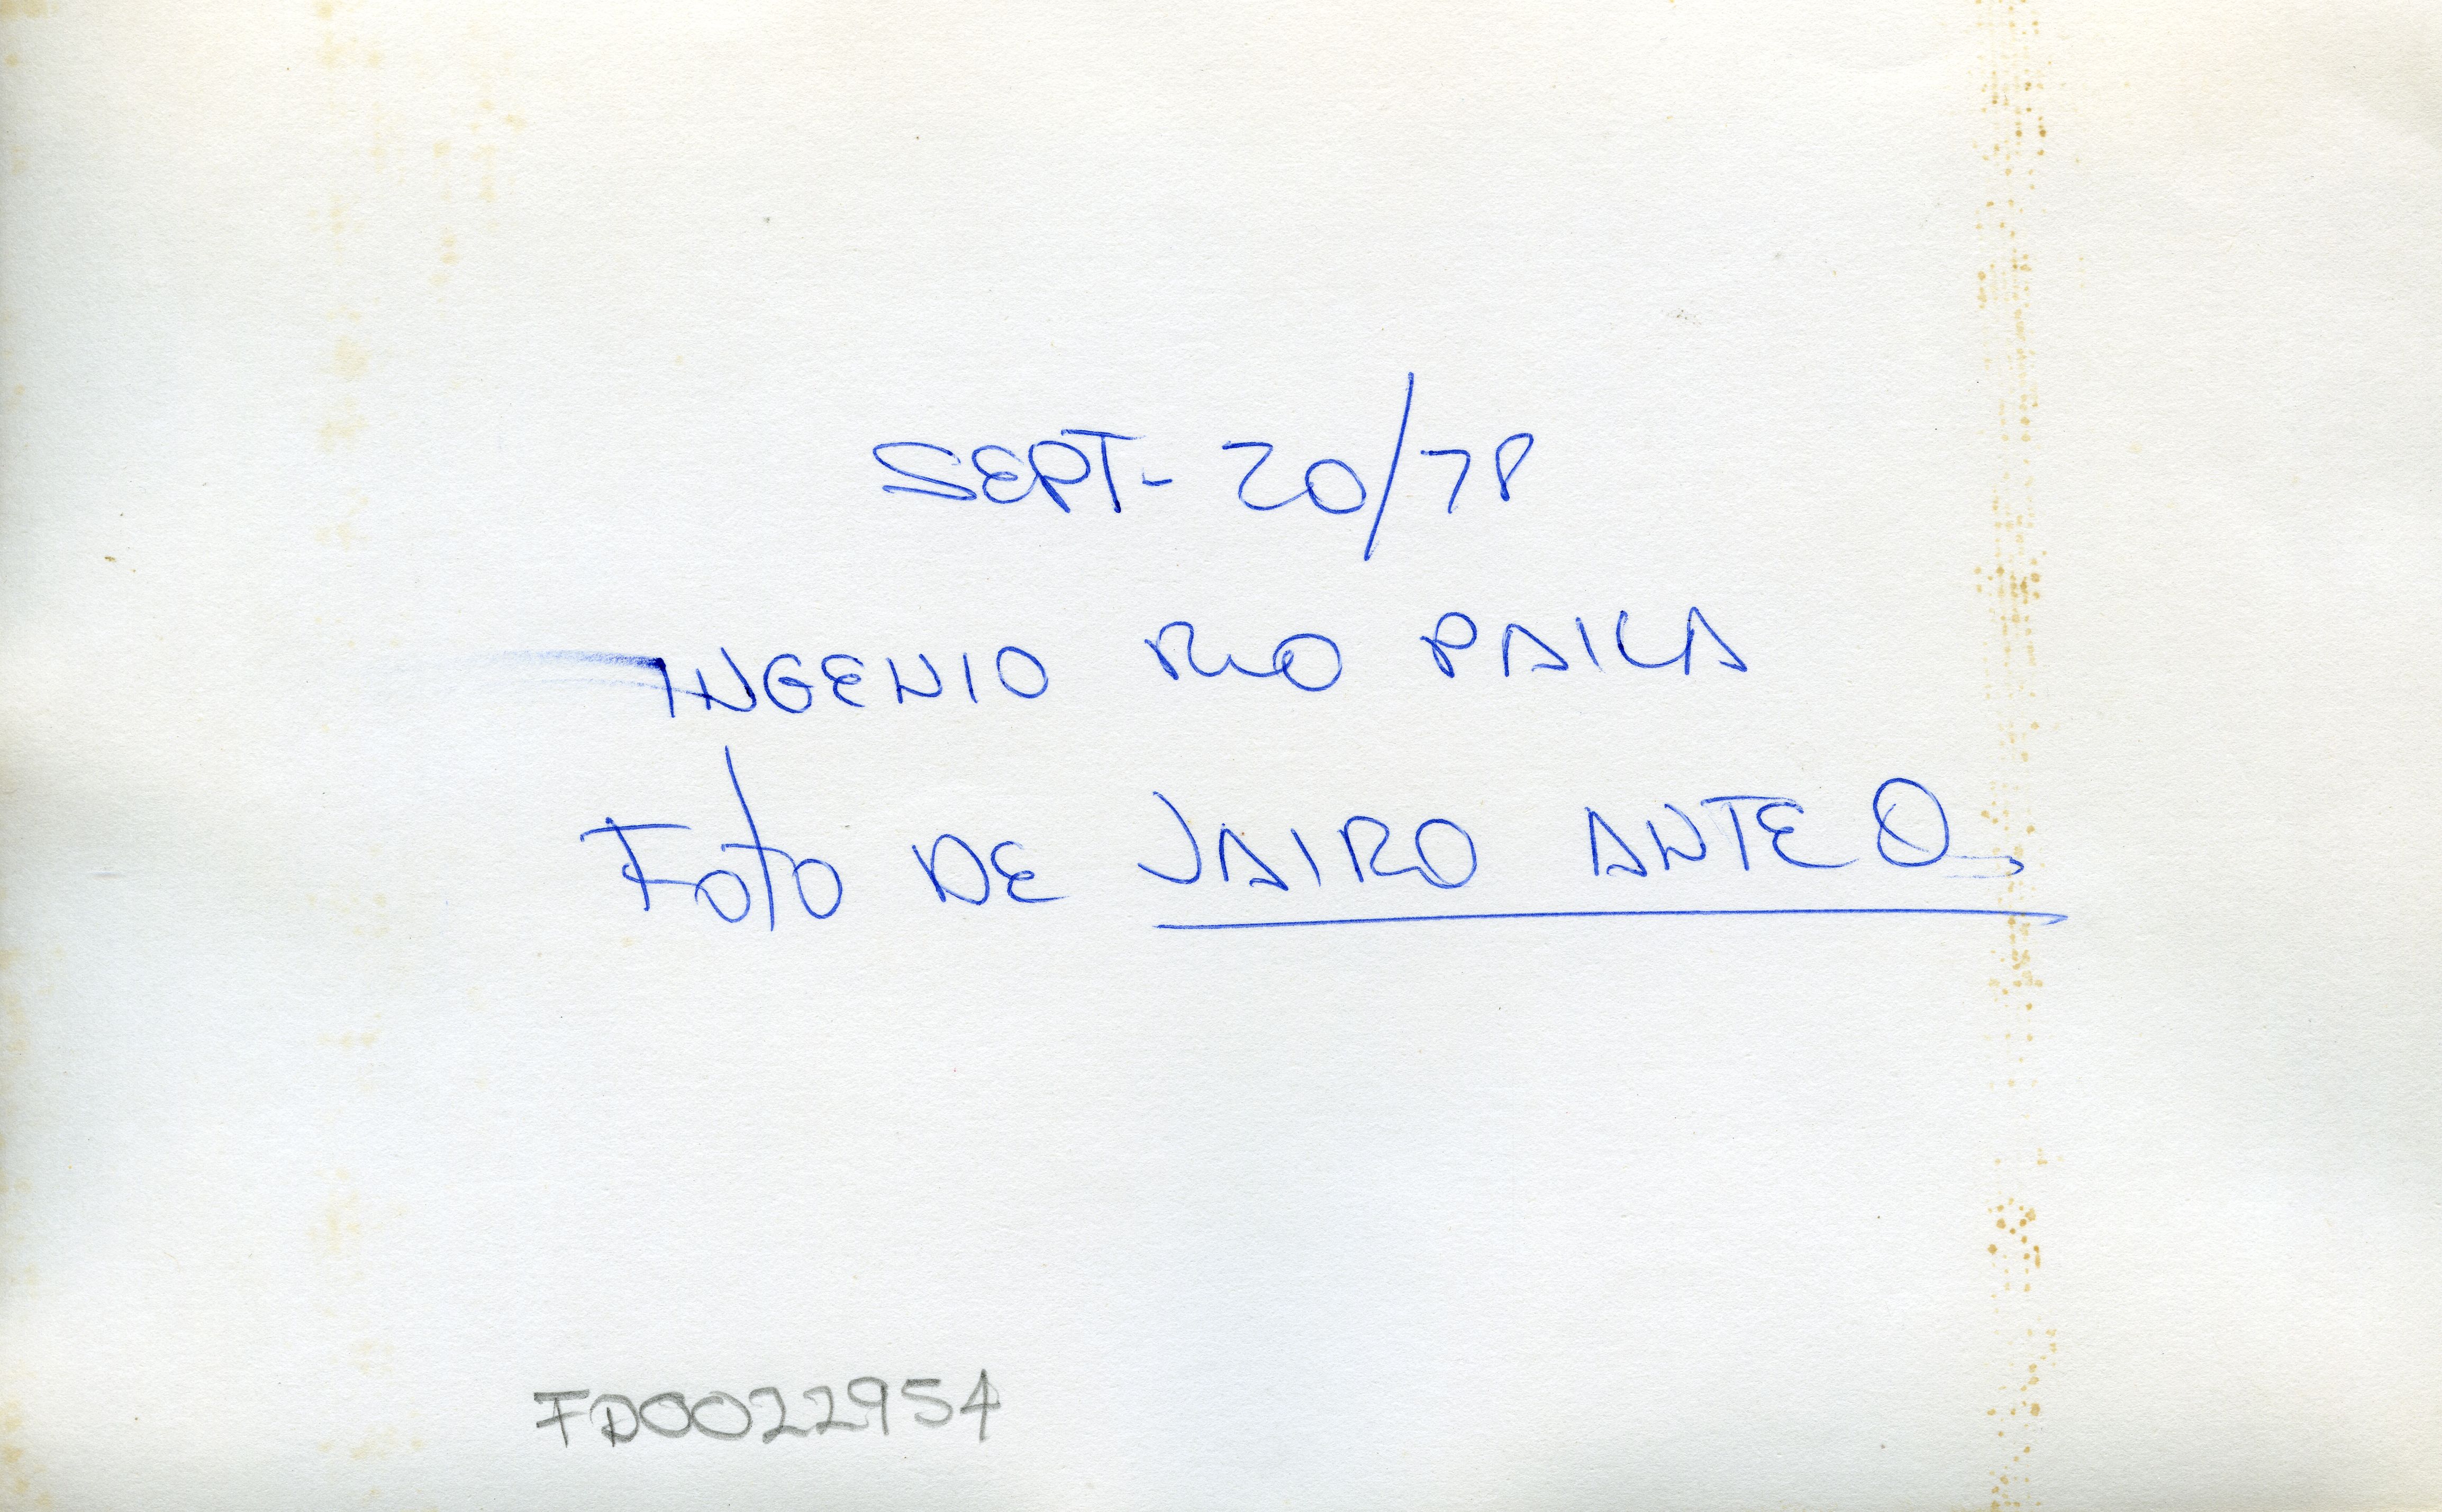 SEPT- 20/78
INGENIO RIO PAILA
FOTO DE JAIRO ANTE O.
FD0022954